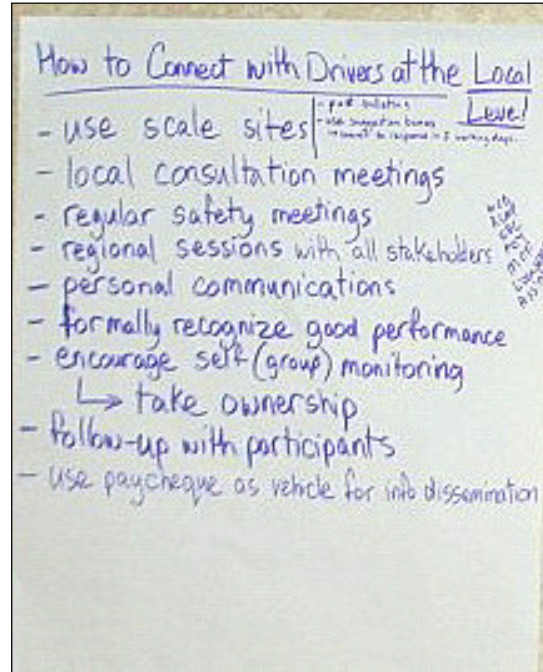 How to Connect with Drivers at the Local
Level
- use scale sites
- post bulletins
- use suggestion boxes
- local consultation meetings
- regular safety meetings
- regional sessions with all stakeholders
- personal communications
- formally recognize good performance
- encourage self (group) monitoring
↳ take ownership
- follow-up with participants
- use paycheque as vehicle for info dissemination